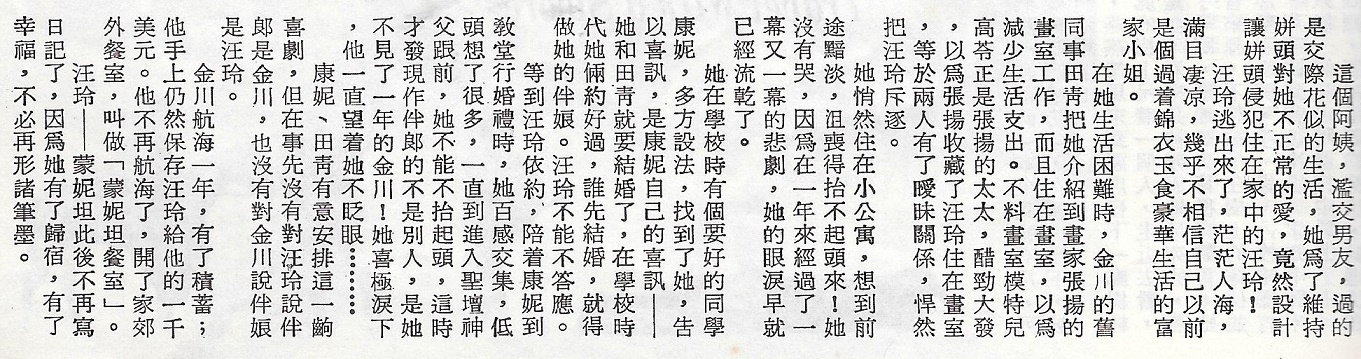 這個阿姨，濫交男友，過的
是交際花似的生活，她爲了維持
姘頭對她不正常的愛，竟然設計
讓姘頭侵犯住在家中的汪玲！
汪玲逃出來了，茫茫人海，
滿目凄凉，幾乎不相信自己以前
是個過着錦衣玉食豪華生活的富
家小姐。
在她生活困難時，金川的舊
同事田靑把她介紹到畫家張揚的
畫室工作，而且住在畫室，以爲
減少生活支出。不料畫室模特兒
高苓正是張揚的太太，醋勁大發
，以爲張揚收藏了汪玲住在畫室
，等於兩人有了曖昧關係，悍然
把汪玲斥逐。
她悄然住在小公寓，想到前
途黯淡，沮喪得抬不起頭來！她
沒有哭，因爲在一年來經過了一
幕又一幕的悲劇，她的眼淚早就
已經流乾了。
她在學校時有個要好的同學
康妮，多方設法，找到了她，告
以喜訊，是康妮自己的喜訊——
她和田靑就要結婚了，在學校時
代她倆約好過，誰先結婚，就得
做她的伴娘。汪玲不能不答應。
等到汪玲依約，陪着康妮到
敎堂行婚禮時，她百感交集，低
頭想了很多，一直到進入聖壇神
父跟前，她不能不抬起頭，這時
才發現作伴郞的不是別人，是她
不見了一年的金川！她喜極淚下
，他一直望着她不眨眼………
康妮、田靑有意安排這一齣
喜劇，但在事先沒有對汪玲說伴
郞是金川，也沒有對金川說伴娘
是汪玲。
金川航海一年，有了積蓄；
他手上仍然保存汪玲給他的一千
美元。他不再航海了，開了家郊
外餐室，叫做「蒙妮坦餐室」。
汪玲——蒙妮坦此後不再寫
日記了，因爲她有了歸宿，有了
幸福，不必再形諸筆墨。